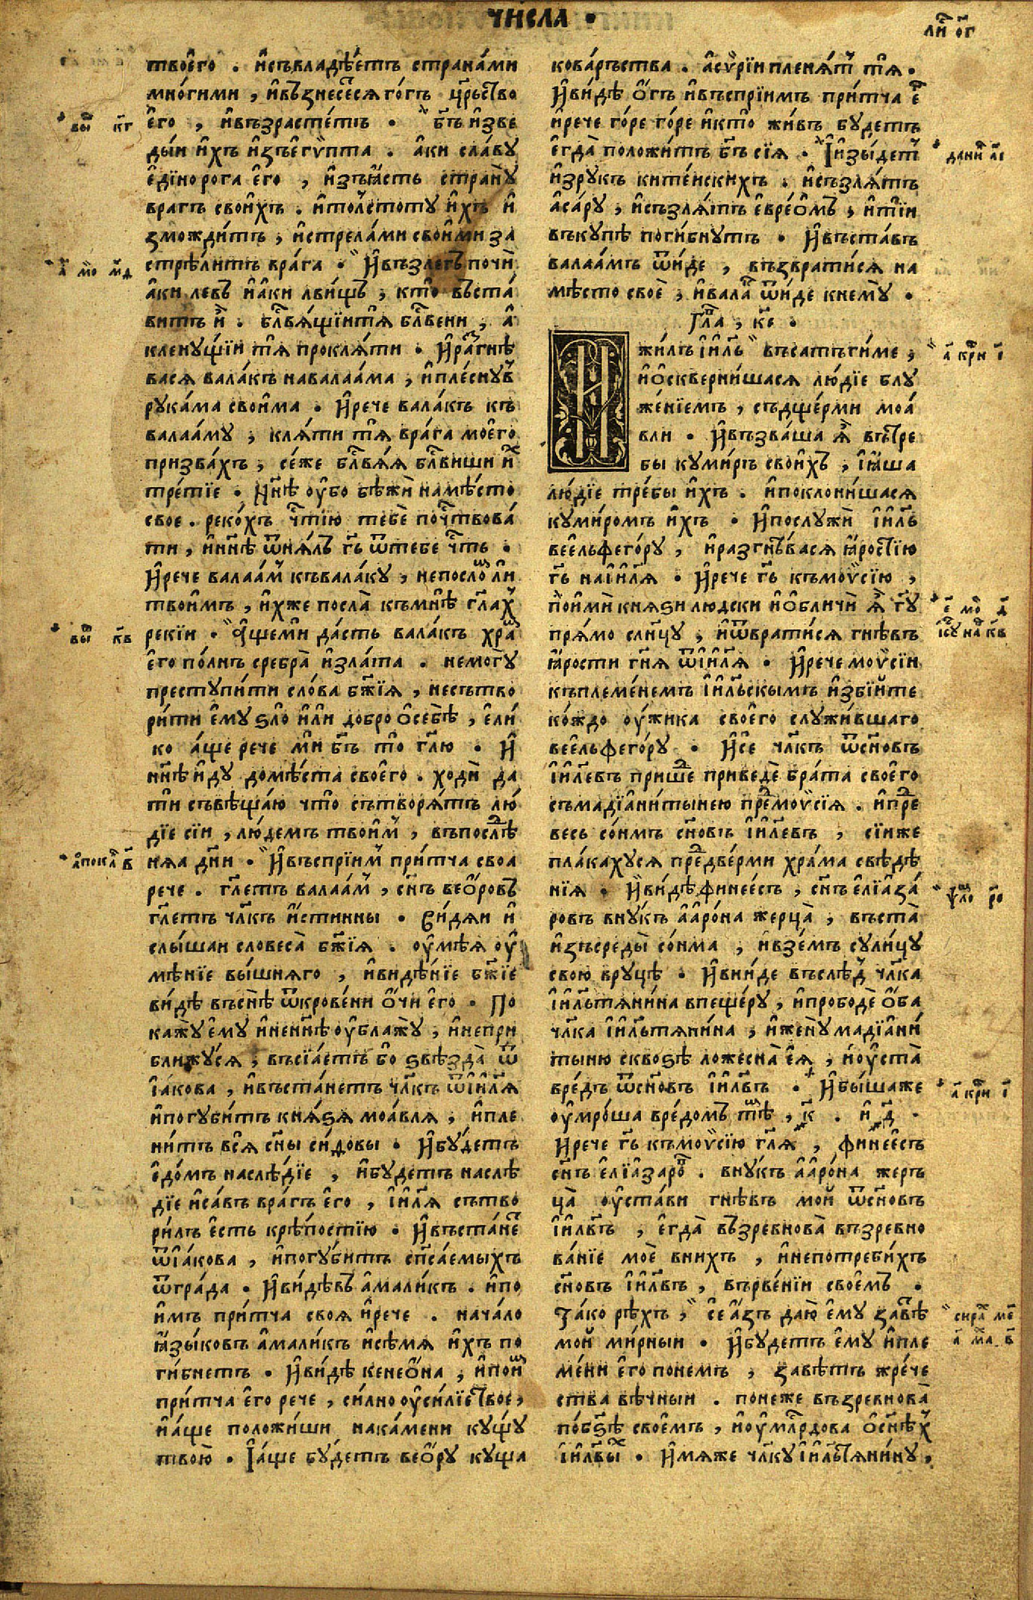 ЧИСЛА •
ли҇ о҃г
твоего̀ . и҆съвладѣ́етъ страна́ми
мно́гими , и҆възнесе́сѧ го́гъ цр҇ьство
е҆го̀ , и҆възрасте́тъ • бг҃ъ и҆зве
ды́и и҆́хъ и҆зъе҆гѵ́пта . а҆́ки сла́ву
е҆дїноро́га е҆го̀ , и҆зъꙗ҆́сть страну̀
вра́гъ свои́хъ . и҆то́лстоту и҆́хъ и҆
змождитъ , и҆стрела́ми свои́ми за
стрѣ́литъ врага̀ • И҆възле́гъ почи
а҆́ки ле́въ и҆а҆́ки льви́щъ , кто̀ въста́
витъ и҆̀ . бл҃гвѧ́щїитѧ бл҃гвени , а҆
кленущїи тѧ̀ про́клѧти • И҆ра́гнѣ
васѧ вала́къ навалаа́ма , и҆пле́снувъ
рука́ма свои́ма • И҆рече вала́къ къ
валаа́му , клѧ́ти тѧ̀ врага̀ моего̀
призва́хъ , се́же бл҃гвѧ́ѧ бл҃гвиши и҆̀х
тре́тїе • Нн҃ѣ оу҆бо бѣжѝ намѣ́сто
свое . реко́хъ че҇тїю тебѐ поче҇твова́
ти , и҆нн҃ѣ ѿнѧ́лъ гь҃ ѿтебе че҇ть •
И҆рече валаа́м къвала́ку , непосло́мъ ли
твои́мъ , и҆́хже посла̀ къмнѣ̀ гл҃ах
реки́и • А҆́щеми да́сть вала́къ хра́м
е҆го̀ по́лнъ сребра̀ и҆зла́та . немогу̀
преступи́ти сло́ва бж҃їѧ , несътво
ри́ти е҆му̀ ѕло̀ и҆́ли добро̀ ѡ҆себѣ̀ , е҆ли́
ко а҆́ще рече мѝ бг҃ъ то̀ гл҃ю • И҆
нн҃ѣ и҆ду̀ домѣ́ста своего̀ . ходѝ да
тѝ съвѣщаю что̀ сътворѧ́тъ лю́
дїе сїи , лю́демъ твои́м , въпослѣ́д
нѧа дн҃и • И҆въспрїимъ при́тча своа
рече . гл҃етъ валаа́м , сн҃ъ веѡ́ровъ
гл҃етъ чл҃къ и҆́стинны • Ви́дѧи и҆
слы́шаи словеса̀ бж҃їѧ . оу҆мѣ́ѧ оу҆
мѣ́нїе вы́шнѧго , и҆видѣ́нїе бж҃їе
ви́дѣ въснѣ̀ ѿкрове́ни ѻ҆́чи е҆го̀ • По
кажу̀ е҆му̀ и҆ненн҃ѣ оу҆блажу̀ , и҆непри
ближу́сѧ , въсїѧ́етъ бо ѕвѣзда̀ ѿ
і҆а́кова , и҆въста́нетъ чл҃къ ѿі҆и҃лѧ
и҆погуби́тъ кнѧ́ѕѧ моа́влѧ , и҆пле
ни́тъ всѧ̀ сн҃ы си́довы • И҆бу́детъ
е҆до́мъ наслѣ́дїе , и҆бу́детъ наслѣ́
дїе и҆са́въ вра́гъ е҆го̀ , і҆и҃лѧ сътво
ри́лъ е҆сть крѣ́постїю • И҆въста́не
ѿі҆а́кова , и҆погу́битъ спс҃аемыхъ
ѿгра́да • И҆ви́дѣвъ а҆мали́къ . и҆по
и҆мъ при́тча своѧ и҆рече . нача́ло
ꙗ҆зы́ковъ а҆мали́къ и҆сѣ́мѧ и҆́хъ по
ги́бнетъ • И҆ви́дѣ кенеѡ́на , и҆пои́м
при́тча е҆го̀ рече , си́лно оу҆си́лїе твое ,
и҆а҆́ще положи́ши нака́мени кущу
твою̀ • І҆а҆́ще бу́детъ веѡ́ру куща
кова́рьства . а҆сѵрїи пленѧ́тъ тѧ̀ •
И҆ви́дѣ ѻ҆́гъ и҆въспрїи́мъ при́тча е҆го
и҆рече го́ре го́ре и҆кто̀ жи́въ бу́детъ
е҆гда̀ положи́тъ бг҃ъ сїѧ̀ • І҆изы́детъ
и҆зру́къ ките́искихъ . и҆съзлѧ́тъ
а҆са́ру , и҆съзлѧ́тъ е҆вре́ѡмъ , и҆ті́и
въку́пѣ поги́бнутъ • И҆въста́въ
валаа́мъ ѿи́де , възврати́сѧ на
мѣ́сто своѐ , и҆вала́къ ѿи́де кнему̀ •
Гла҇ , к҃е •
И жи́лъ і҆и҃ль въсатъги́ме ,
и҆ѡ҆скверни́шасѧ лю́дїе блу
же́нїемъ , съдще́рми моа́
вли • И҆възва́ша ѧ҆̀ вътре
бы куми́ръ свои́хъ , і҆ꙗ҆́ша
лю́дїе тре́бы и҆́хъ . и҆поклони́шасѧ
куми́ромъ и҆́хъ • И҆послужѝ і҆и҃ль
веельфего́ру , и҆разгнѣ́васѧ ꙗ҆́ростїю
гь҃ наі҆и҃лѧ • И҆рече гь҃ къмоѵсїю ,
пои҆мѝ кнѧ́ѕи лю́дски и҆ѡ҆бличѝ ѧ҆̀ гу҃
прѧ́мо сл҃нцу , и҆ѿврати́сѧ гнѣ́въ
ꙗ҆́рости гн҃ѧ ѿі҆и҃лѧ • И҆рече моѵсїи
къплеме́немъ і҆и҃льскымъ и҆збі́ите
ко́ждо оу҆́жика своего̀ служи́вшаго
веельфего́ру • И҆се чл҃къ ѿсн҃овъ
і҆и҃левъ прише́д приведѐ бра́та своего̀
съмадїани́тынею пре҇дмоѵсїѧ . и҆пре҇д
весь со́нмъ сн҃овъ і҆и҃левъ , сїи́же
пла́кахусѧ пре҇две́рми хра́ма свѣдѣ́
нїѧ • И҆ви́дѣ финее́съ , сн҃ъ е҆лїаза́
ровъ вну́къ а҆арѡ́на жерца̀ , въста̀
и҆зъсреды̀ со́нма , и҆взе́мъ сули́цу
свою̀ вру́цѣ • И҆вни́де въслѣ́д чл҃ка
і҆и҃льтѧнина впеще́ру , и҆прободѐ ѻ҆́ба
чл҃ка і҆и҃льтѧнина , и҆жену̀ мадїани
тыню скво́ѕѣ ложесна̀ е҆ѧ̀ , и҆оу҆ста̀
вре́дъ ѿсн҃овъ і҆и҃лвъ • И҆бы́шаже
оу҆мро́ша вре́домъ ты҇сѣ , к҃ . и҆ д҃ .
И҆рече гь҃ къмоѵсїю гл҃ѧ , финее́съ
сн҃ъ е҆лїазаро҇в . вну́къ а҆арѡ́на жер
ца̀ оу҆ста́ви гнѣ́въ мой ѿсн҃овъ
і҆и҃лвъ , е҆гда̀ възревнова̀ възревно
ва́нїе моѐ вни́хъ , и҆непотреби́хъ
сн҃овъ і҆и҃лвъ , върве́нїи своѐмъ .
Та́ко рѣ́хъ , се а҆́зъ даю̀ е҆му̀ завѣ́т
мой ми́рныи • И҆бу́детъ е҆му̀ и҆пле
мени е҆го̀ понемъ , завѣ́тъ жре́че
ства вѣ́чныи . поне́же възревнова̀
по́бз҃ѣ свое́мъ , и҆оу҆мл҇рдова ѡ҆сн҃ѣх
і҆и҃лвы҇х • И҆мѧже чл҃ку і҆и҃льтѧнину ,
во҇ к҃г
а҃ мо҇ м҃д
во҇ к҃в
а҆пока҇ в҃
дани҇ а҃і
а҃ кѡ҇ри і҃
е҃ мо҇ д҃
і҆су҇ на҇ к҃в
ѱало҇ р҃ѻ
а҃ кѡ҇ри і҃
сира҇ м҃е
а҃ ма҇ в҃